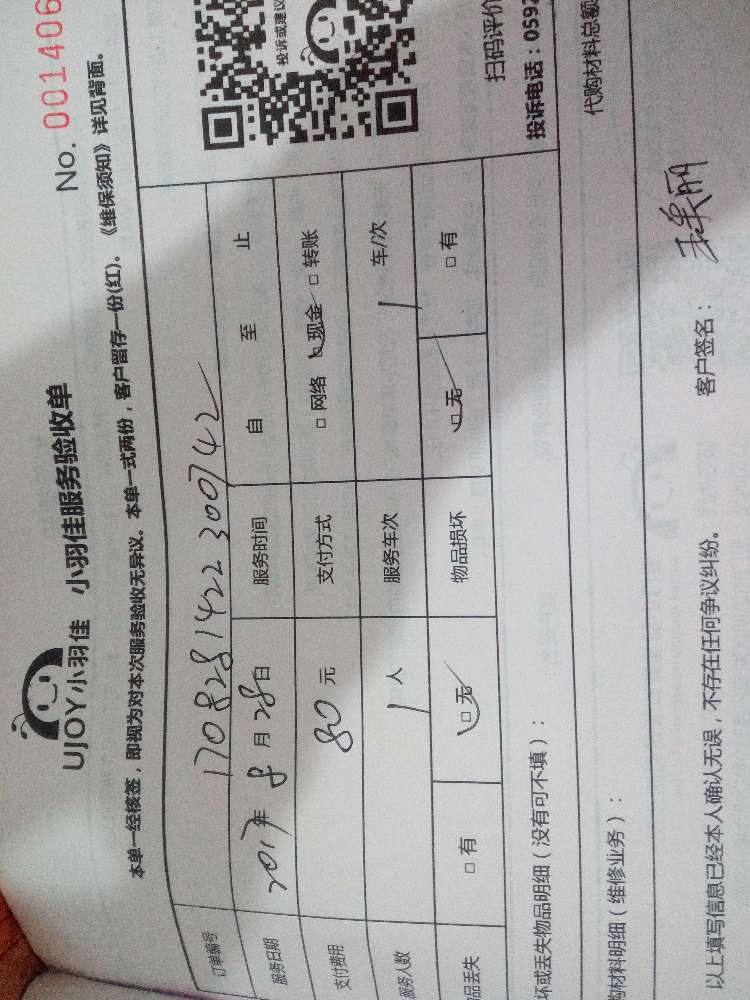 No. 001406
UJOY小羽佳 小羽佳服务验收单
本单一经核签，即视为对本次服务验收无异议。本单一式两份，客户留存一份(红)。《维保须知》详见背面。
投诉或建议
订单编号 1708281422300742
服务日期 2017年 8月 28日 服务时间 自 至 止
支付费用 80元 支付方式 □ 网络 □ 现金 □ 转账
服务人数 1人 服务车次 1 车/次
品丢失 □ 有 □ 无 物品损坏 □ 无 □ 有
扫码评价
投诉电话：0592
坏或丢失物品明细（没有可不填）：
代购材料总额
购材料明细（维修业务）：
以上填写信息已经本人确认无误，不存在任何争议纠纷。 客户签名：